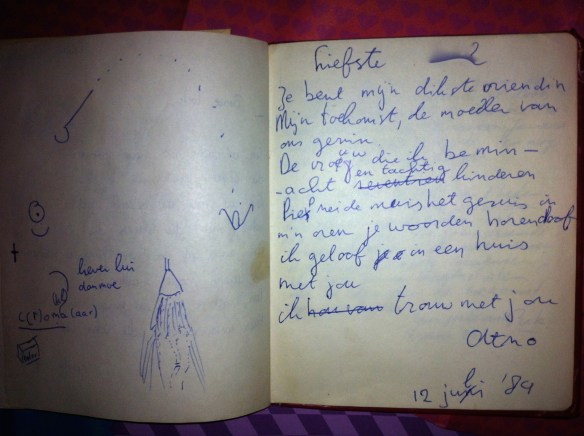 liever lui
dan moe
Liefste 2
Je bent mijn dikste vriendin
Mijn toekomst, de moeder van
ons gezin.
De vrouw die ik bemin –
- acht en tachtig zeventien kinderen
Piep zei de muis het gesuis in
m'n oren je woorden horendoof
ik geloof je in een huis
met jou
ik hou van trouw met jou
12 juli '84